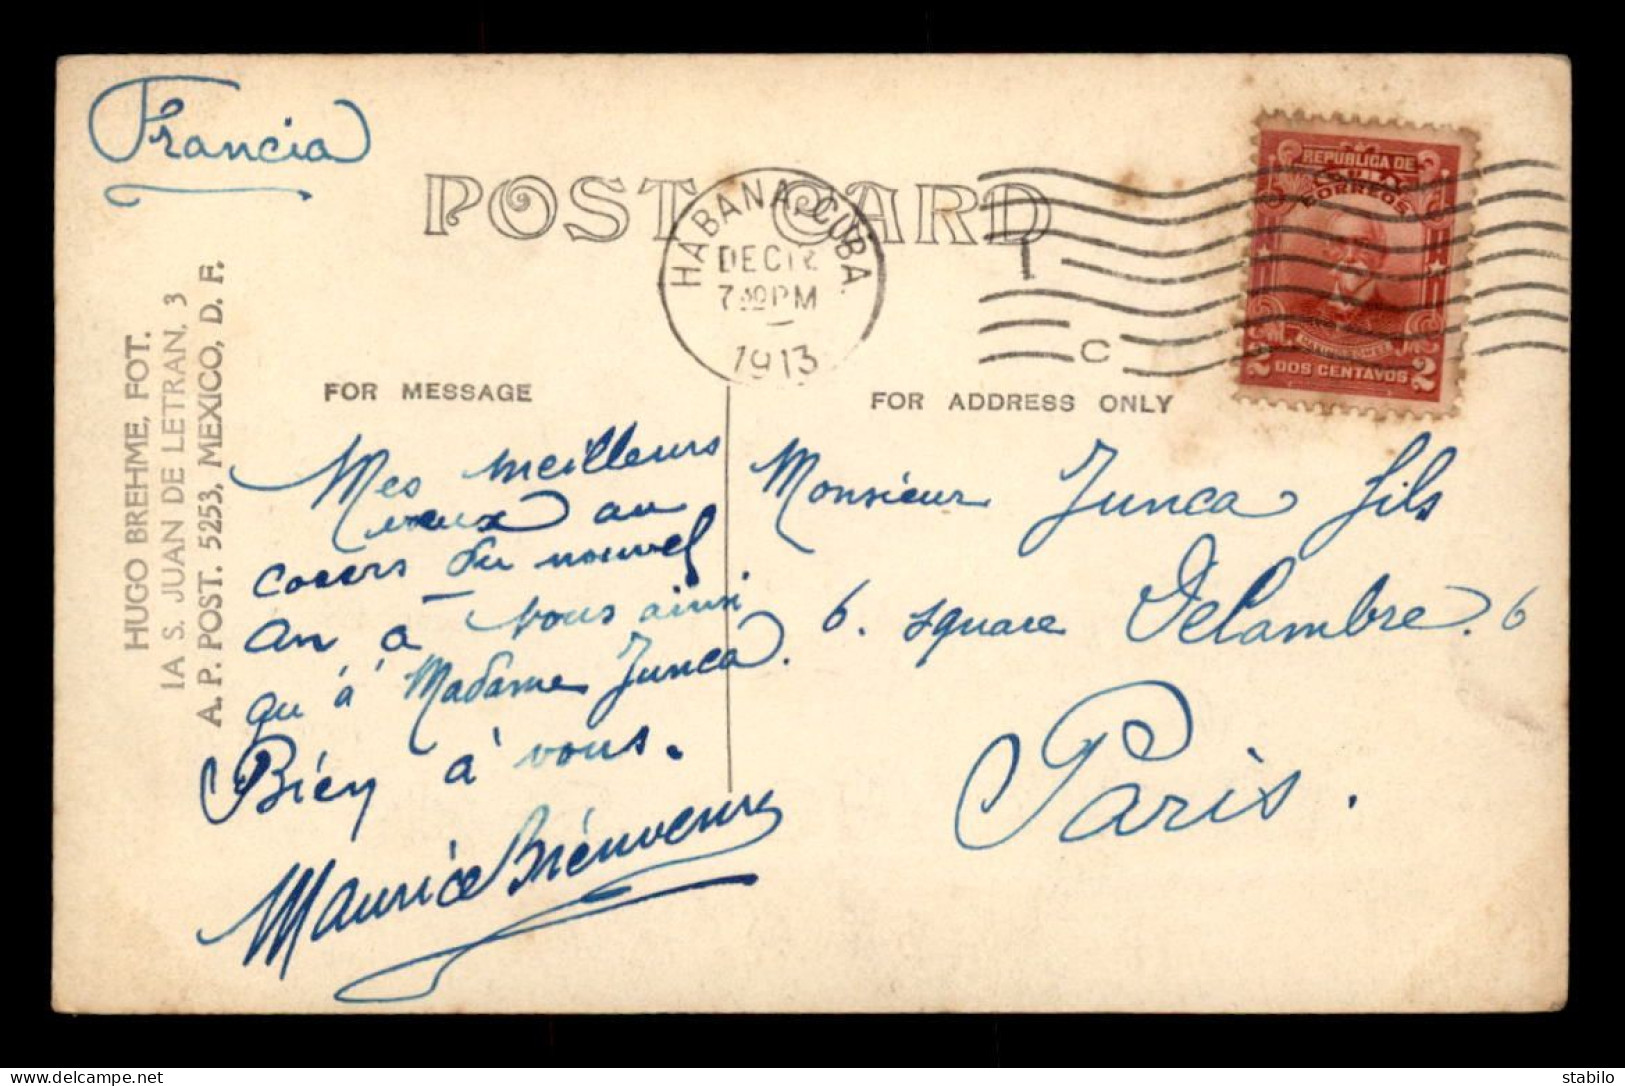 Francia
POST CARD
HABANA, CUBA.
DEC 12
7 PM
1913
C
REPUBLICA DE
CUBA
CORREOS
2 DOS CENTAVOS 2
HUGO BREHME, FOT.
1A S. JUAN DE LETRAN, 3
A. P. POST. 5253, MEXICO, D. F.
FOR MESSAGE
FOR ADDRESS ONLY
Mes meilleurs
vœux au
cours du nouvel
an à vous ainsi
qu'à Madame Junca.
Bien à vous.
Maurice Bienvenu
Monsieur Junca fils
6. square Delambre. 6
Paris.
stabilo